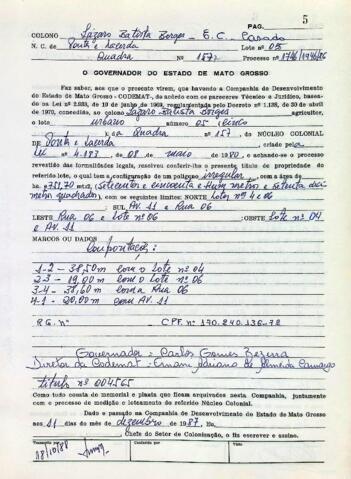 5
PAG.
COLONO Lazaro Batista Borges - E.C. Casado
N. C. de Ponte e Lacerda Lote nº 05
Quadra nº 157 Processo nº 1746/1946/86
O GOVERNADOR DO ESTADO DE MATO GROSSO
Faz saber, aos que o presente virem, que havendo a Companhia de Desenvolvimento
do Estado de Mato Grosso - CODEMAT-, de acordo com os pareceres Técnico e Jurídico, basea-
do na Lei nº 2.933, de 19 de junho de 1969, regulamentada pelo Decreto nº 1.138, de 30 de abril
de 1970, concedido, ao colono Lazaro Batista Borges agricultor,
o lote urbano número 05 - cinco
da Quadra nº 157, do NÚCLEO COLONIAL
DE Ponte e Lacerda criado pela
Lei nº 4.183, de 08 de maio 1980, e achando-se o processo
revestido das formalidades legais, resolveu conferir-lhe o presente título de propriedade do
referido lote, o qual tem a configuração de um polígono irregular, com a área de
SUL Av. 11 e Rua 06
LESTE Rua 06 e Lote nº 06 ;OESTE Lote nº 04
e Av. 11
MARCOS OU DADOS
1-2 - 38,50m com o Lote nº 04
2-3 - 19,00m com o Lote nº 06
3-4 - 38,60m com a Rua 06
4-1 - 20,00m com Av. 11
R.G. nº CPF. nº 170.240.136-72
Governador: Carlos Gomes Bezerra
Diretor da Codemat: Ernani Adriano de Almeida Camargo
título nº 004565
Como tudo consta de memorial e planta que ficam arquivados nesta Companhia, juntamente
com o processo de medição e loteamento do referido Núcleo Colonial.
Dado e passado na Companhia de Desenvolvimento do Estado de Mato Grosso
aos 11 dias do mês de dezembro de 1987. Eu,
Chefe do Setor de Colonização, o fiz escrever e assino.
Conferido por
Visto
18/10/88